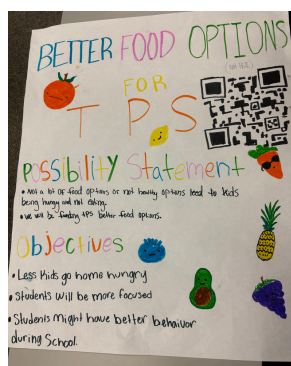 BETTER FOOD OPTIONS
FOR
TPS
Possibility Statement
• Not a lot of food options or not healthy options lead to kids
being hungry and not eating.
• We will be finding TPS better food options.
Objectives
• Less kids go home hungry
• Students will be more focused
• Students might have better behaivor
during School.